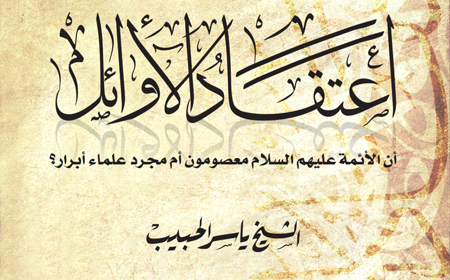 اعتقاد الأوائل
أن الأئمة عليهم السلام معصومون أم مجرد علماء أبرار؟
الشيخ ياسر الحبيب